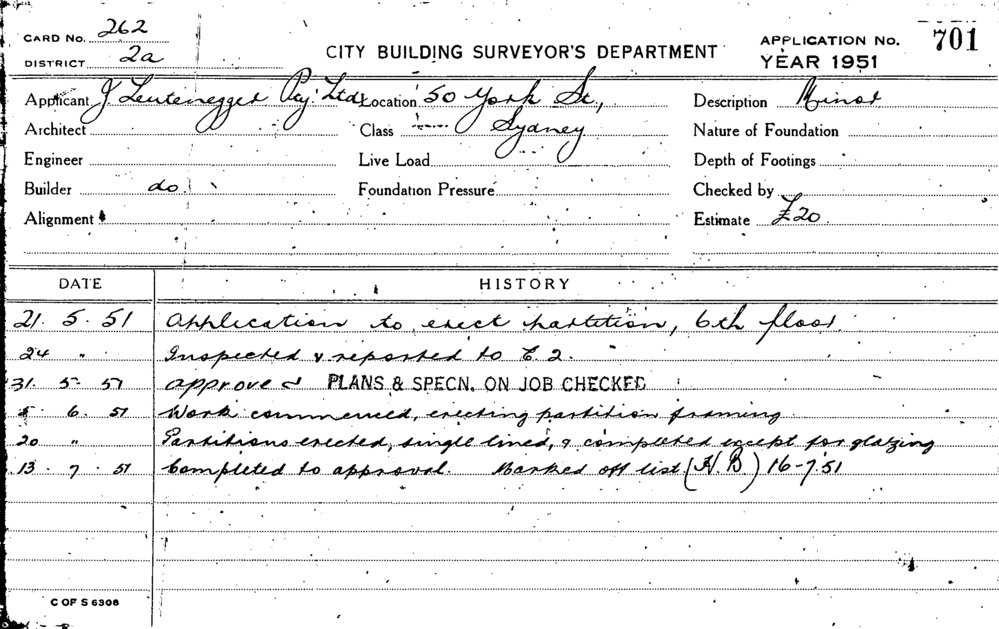 CARD No. 262
DISTRICT 2a
CITY BUILDING SURVEYOR'S DEPARTMENT
APPLICATION No. 701
YEAR 1951
Applicant J Leutenegger Pty. Ltd. Location 50 York St., Description Minor
Architect Class Sydney Nature of Foundation
Engineer Live Load Depth of Footings
Builder do. Foundation Pressure Checked by
Alignment Estimate £20.
DATE HISTORY
21. 5. 51 Application to erect partition, 6th floor.
24 " Inspected & reported to C 2.
31. 5. 51 approved PLANS & SPECN. ON JOB CHECKED
5. 6. 51 Work commenced, erecting partition framing.
20 " Partitions erected, single lined, & completed except for glazing
13. 7. 51 Completed to approval. Marked off list (H.B.) 16-7.51
C OF S 6306